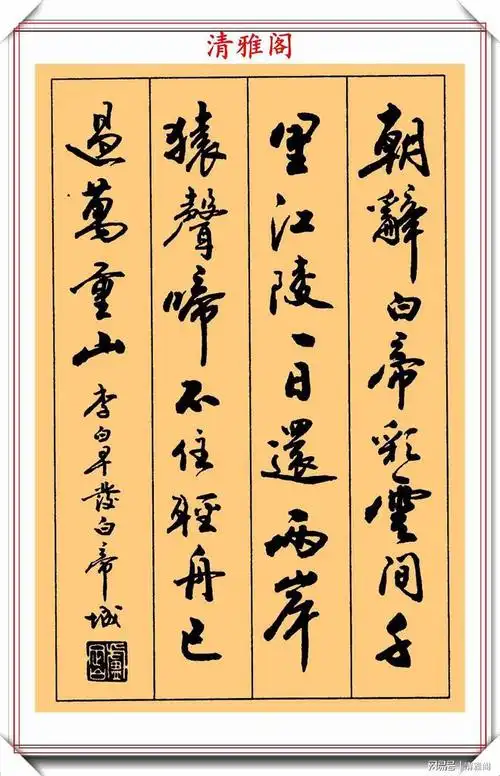 清雅阁
朝辭白帝彩雲間千
里江陵一日還兩岸
猿聲啼不住輕舟已
過萬重山
李白早發白帝城
网易号 清雅阁